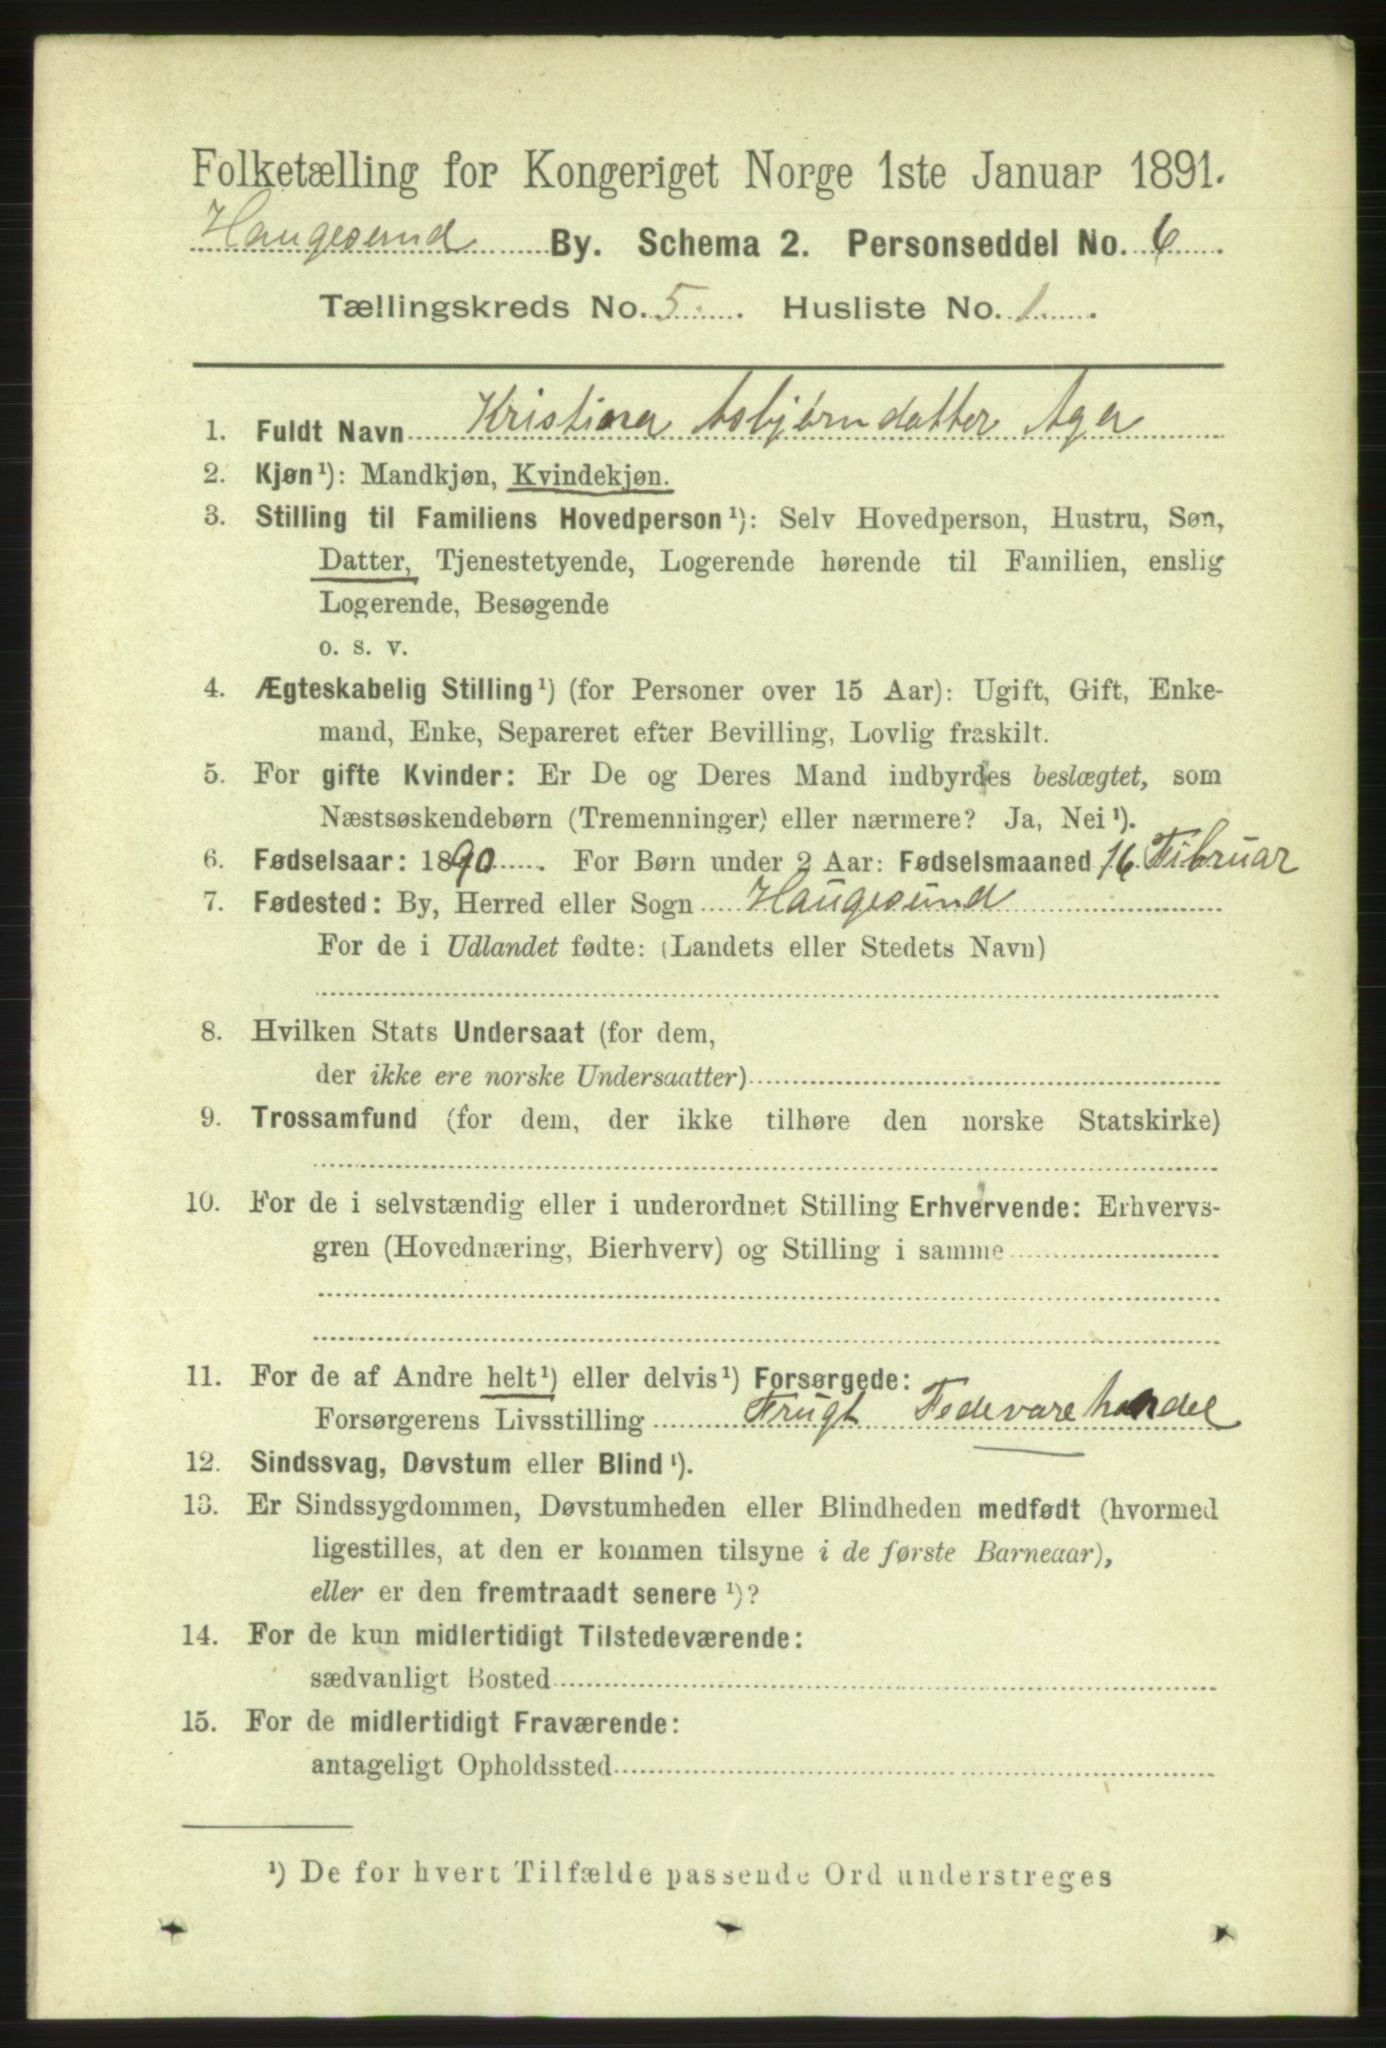 Folketælling for Kongeriget Norge 1ste Januar 1891.
Haugesund By. Schema 2. Personseddel No. 6
Tællingskreds No. 5. Husliste No. 1.
1. Fuldt Navn Kristina Asbjørndatter Aga
2. Kjøn¹): Mandkjøn, Kvindekjøn.
3. Stilling til Familiens Hovedperson¹): Selv Hovedperson, Hustru, Søn,
Datter, Tjenestetyende, Logerende hørende til Familien, enslig
Logerende, Besøgende
o. s. v.
4. Ægteskabelig Stilling¹) (for Personer over 15 Aar): Ugift, Gift, Enke-
mand, Enke, Separeret efter Bevilling, Lovlig fraskilt.
5. For gifte Kvinder: Er De og Deres Mand indbyrdes beslægtet, som
Næstsøskendebørn (Tremenninger) eller nærmere? Ja, Nei¹).
6. Fødselsaar: 1890. For Børn under 2 Aar: Fødselsmaaned 16. Fibruar
7. Fødested: By, Herred eller Sogn Haugesund
For de i Udlandet fødte: (Landets eller Stedets Navn)
8. Hvilken Stats Undersaat (for dem,
der ikke ere norske Undersaatter)
9. Trossamfund (for dem, der ikke tilhøre den norske Statskirke)
10. For de i selvstændig eller i underordnet Stilling Erhvervende: Erhvervs-
gren (Hovednæring, Bierhverv) og Stilling i samme
11. For de af Andre helt¹) eller delvis¹) Forsørgede:
Forsørgerens Livsstilling Frugt Fedevarehandel
12. Sindssvag, Døvstum eller Blind¹).
13. Er Sindssygdommen, Døvstumheden eller Blindheden medfødt (hvormed
ligestilles, at den er kommen tilsyne i de første Barneaar),
eller er den fremtraadt senere¹)?
14. For de kun midlertidigt Tilstedeværende:
sædvanligt Bosted
15. For de midlertidigt Fraværende:
antageligt Opholdssted
¹) De for hvert Tilfælde passende Ord understreges